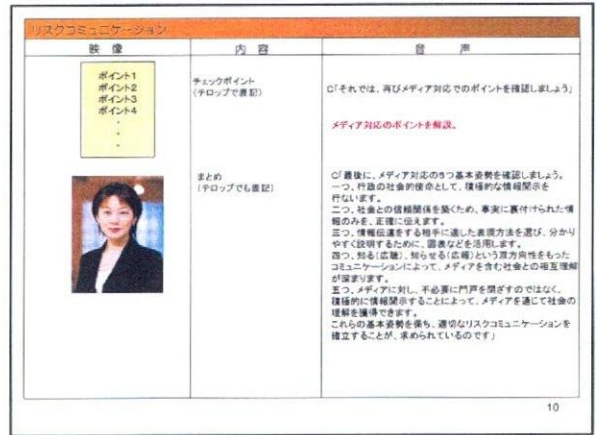 リスクコミュニケーション
映 像
内 容
音 声
ポイント1
ポイント2
ポイント3
ポイント4
・
・
・
チェックポイント
(テロップで表記)
C「それでは、再びメディア対応でのポイントを確認しましょう」
メディア対応のポイントを解説。
まとめ
(テロップでも表記)
C「最後に、メディア対応の5つ基本姿勢を確認しましょう。
一つ、行政の社会的使命として、積極的な情報開示を
行ないます。
二つ、社会との信頼関係を築くため、事実に裏付けられた情
報のみを、正確に伝えます。
三つ、情報伝達をする相手に適した表現方法を選び、分かり
やすく説明するために、図表などを活用します。
四つ、知る(広聴)、知らせる(広報)という双方向性をもった
コミュニケーションによって、メディアを含む社会との相互理解
が深まります。
五つ、メディアに対し、不必要に門戸を閉ざすのではなく、
積極的に情報開示することによって、メディアを通じて社会の
理解を獲得できます。
これらの基本姿勢を保ち、適切なリスクコミュニケーションを
確立することが、求められているのです」
10